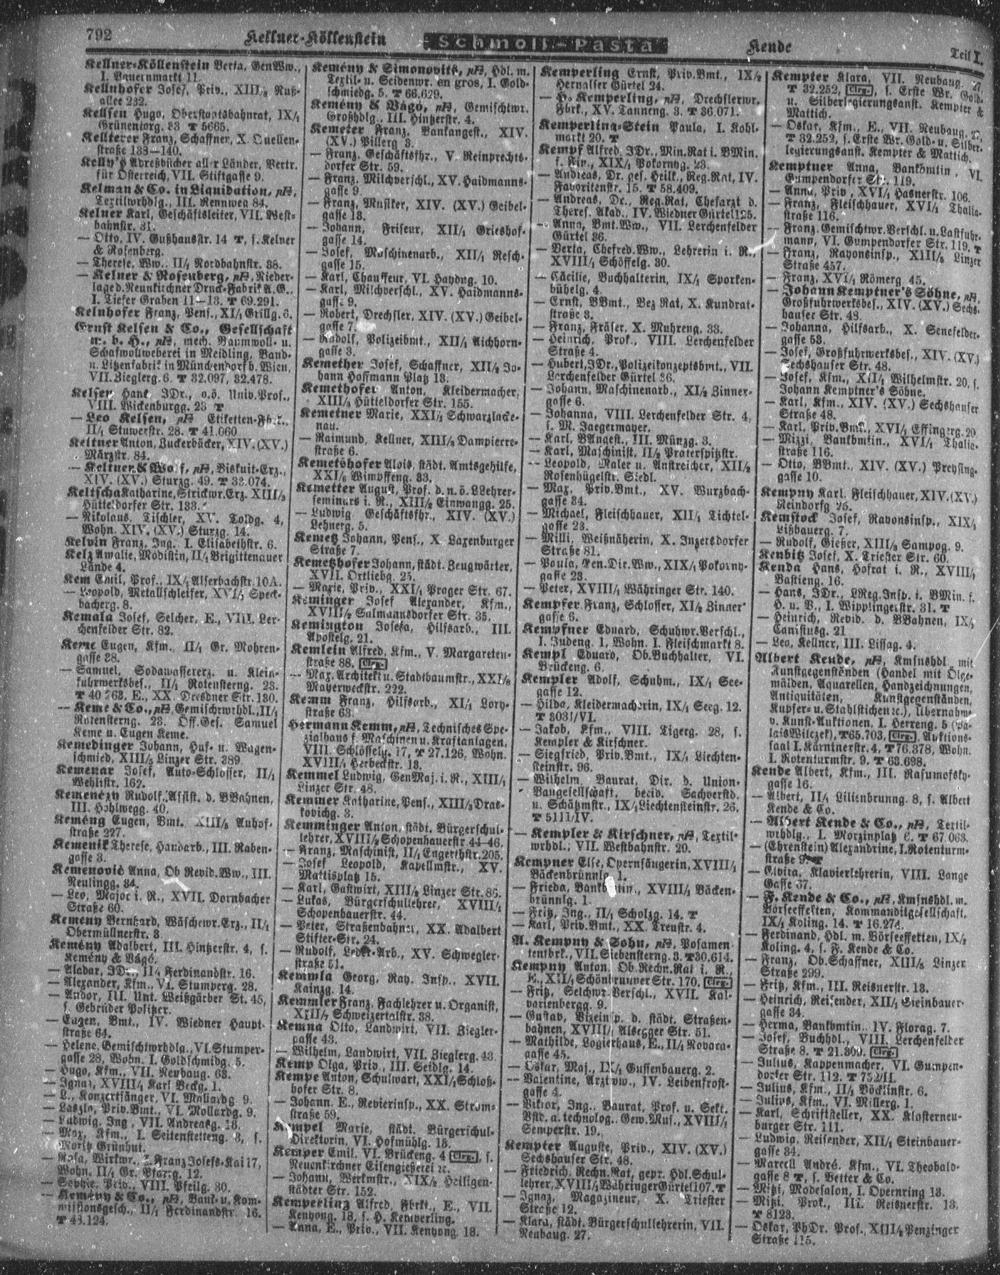 792
Kellner-Köllenstein
Schmoll-Pasta
Kende
Teil I.
Kellner-Köllenstein Berta, GenWw.,
I. Bauernmarkt 11.
Kellnhofer Josef, Priv., XIII/2 Nuß-
allee 232.
Kellsen Hugo, Oberstaatsbahnrat, IX/4
Grünentorg. 33 T 5665.
Kellterer Franz, Schaffner, X. Quellen-
straße 138—140.
Kelly's Adreßbücher aller Länder, Vertr.
für Österreich, VII. Stiftgasse 9.
Kelman & Co. in Liquidation,
Textilwrhdlg., III. Rennweg 84.
Kelner Karl, Geschäftsleiter, VII. West-
bahnstr. 31.
— Otto, IV. Gußhausstr. 14 T, s. Kelner
& Rosenberg.
— Therese, Ww., II/1 Nordbahnstr. 38.
— Kelner & Rosenberg, Nieder-
lage d. Neunkirchner Druck-Fabrik A. G.,
I. Tiefer Graben 11—13. T 69.291.
Kelnhofer Franz, Pens., XI/1 Grillg. 6.
Ernst Kelsen & Co., Gesellschaft
m. b. H., mech. Baumwoll- u.
Schafwollweberei in Meidling, Band-
u. Litzenfabrik in Münchendorf b. Wien,
VII. Zieglerg. 6. T 32.097, 32.478.
Kelsen Hans, JDr., o.ö. Univ.Prof.,
VIII. Wickenburgg. 23 T
— Leo Kelsen, Etiketten-Fbrk.,
II/1 Stuwerstr. 28. T 41.060
Keltner Anton, Zuckerbäcker, XIV. (XV.)
Märzstr. 84.
— Keltner & Wolf, Biskuit-Erz.,
XIV. (XV.) Sturzg. 49. T 33.074.
Keltscha Katharine, Strickwr.Erz., XIII/2
Hütteldorfer Str. 133.
— Nikolaus, Tischler, XV. Toldg. 4,
Wohn. XIV. (XV.) Sturzg. 14.
Kelvin Franz, Ing., I. Elisabethstr. 6.
Kelz Amalie, Modistin, II/1 Brigittenauer
Lände 4.
Kem Emil, Prof., IX/1 Alserbachstr. 10A.
— Leopold, Metallschleifer, XVI/1 Speck-
bacherg. 8.
Kemala Josef, Selcher, E., VIII. Ler-
chenfelder Str. 82.
Keme Eugen, Kfm., II/1 Gr. Mohren-
gasse 28.
— Samuel, Sodawassererz. u. Klein-
fuhrwerksbes., II/1 Rotensterng. 23.
T 40 263, E., XX. Dresdner Str. 130.
— Keme & Co., Gemischtwrhdl., II/1
Rotensterng. 23. Öff. Ges. Samuel
Keme u. Eugen Keme.
Kemedinger Johann, Huf- u. Wagen-
schmied, XIII/5 Linzer Str. 389.
Kemenar Josef, Auto-Schlosser, II/1
Wehlistr. 162.
Kemenézy Rudolf, Assist. d. BBahnen,
III. Hohlwegg. 40.
Kemény Eugen, Bmt., XIII/5 Auhof-
straße 227.
Kemenik Therese, Handarb., III. Raben-
gasse 3.
Kemenović Anna, Ob Revid.Ww., III.
Neulingg. 34.
— Leo, Major i. R., XVII. Dornbacher
Straße 60.
Kemeny Bernhard, Wäschewr.Erz., II/1
Obermüllnerstr. 3
Kemény Adalbert, III. Hintzerstr. 4, s.
Kemény & Bágó.
— Aladar, JDr., II/1 Ferdinandstr. 16.
— Alexander, Kfm., VI. Stumperg. 28.
— Andor, III. Unt. Weißgärber St. 45,
s. Gebrüder Politzer.
— Eugen, Bmt., IV. Wiedner Haupt-
straße 64.
— Helene, Gemischtwrhdlg., VI. Stumper-
gasse 28, Wohn. I. Goldschmidg. 5.
— Hugo, Kfm., VII. Neubaug. 68.
— Ignaz, XVIII/1 Karl Beckg. 1.
— L., Konzertsänger, VI. Mollardg 9.
— Laszlo, Priv.Bmt., VI. Mollardg. 9.
— Ludwig, Ing., VII. Andreasg. 18.
— Max, Kfm., I. Seitenstetteng. 3, s.
Moritz Grünhut.
— Rosa, Wirkwr., I. Franz Josefs-Kai 17,
Wohn. II/1 Gr. Pfarrg. 12.
— Sophie, Priv., VIII. Feilg. 30.
— Kemény & Co., Bank u. Kom-
missionsgesch., II/1 Ferdinandstr. 16.
T 43.124.
Kemény & Simonovits, Hdl. m.
Textil- u. Seidenwr. en gros, I. Gold-
schmiedg. 5. T 66.629.
Kemény & Bágó, Gemischtwr.
Großhdlg., III. Hintzerstr. 4.
Kemeter Franz, Bankangest., XIV.
(XV.) Pillerg 3.
— Franz, Geschäftsfhr., V. Reinprechts-
dorfer Str. 59.
— Franz, Milchverschl., XV. Haidmanns-
gasse 9.
— Franz, Musiker, XIV. (XV.) Geibel-
gasse 13.
— Johann, Friseur, XII/1 Grieshof-
gasse 14.
— Josef, Maschinenarb., XII/1 Resch-
gasse 15.
— Karl, Chauffeur, VI. Haydng. 10.
— Karl, Milchverschl., XV. Haidmanns-
gasse 9.
— Robert, Drechsler, XIV. (XV.) Geibel-
gasse 7.
— Rudolf, Polizeibmt., XII/1 Aichhorn-
gasse 3.
Kemether Josef, Schaffner, XII/2 Jo-
hann Hoffmann Platz 13.
Kemethofer Anton, Kleidermacher,
XIII/2 Hütteldorfer Str. 155.
Kemetner Marie, XXI/5 Schwarzlacke-
nau.
— Raimund, Kellner, XIII/4 Dampierre-
straße 6.
Kemetshofer Alois, städt. Amtsgehilfe,
XXI/1 Wimpffeng. 33.
Kemetter August, Prof. d. n. ö. LLehrer-
seminars i. R., XIII/2 Einwangg. 25.
— Ludwig, Geschäftsfhr., XIV. (XV.)
Lehnerg. 5.
Kemetz Johann, Pens., X. Laxenburger
Straße 7.
Kemetzhofer Johann, städt. Zeugwärter,
XVII. Ortliebg. 25.
— Marie, Priv., XXI/1 Prager Str. 67.
Keminger Josef Alexander, Kfm.,
XVIII/2 Salmannsdorfer Str. 35.
Kemington Josefa, Hilfsarb., III.
Apostelg. 21.
Kemlein Alfred, Kfm., V. Margareten-
straße 88.
— Max, Architekt u. Stadtbaumstr., XXI/2
Mayerweckstr. 222.
Kemm Franz, Hilfsarb., XI/1 Lory-
straße 63.
Hermann Kemm, Technisches Spe-
zialhaus f. Maschinen u. Kraftanlagen,
VIII. Schlösselg. 17, T 27.126, Wohn.
XVIII/3 Herbeckstr. 13.
Kemmel Ludwig, GenMaj. i. R., XIII/1
Linzer Str. 48.
Kemmer Katharine, Pens., XIII/2 Dras-
kovichg. 3.
Kemminger Anton, städt. Bürgerschul-
lehrer, XVIII/2 Schopenhauerstr. 44—46.
— Franz, Maschinist, II/1 Engerthstr. 205.
— Josef Leopold, Kapellmstr., XV.
Mattisplatz 15.
— Karl, Gastwirt, XIII/2 Linzer Str. 86.
— Lukas, Bürgerschullehrer, XVIII/1
Schopenhauerstr. 44.
— Peter, Straßenbahner, XX. Adalbert
Stifter-Str. 24.
— Rudolf, Arb., XV. Schwegler-
straße 51.
Kemmla Georg, Ray. Insp., XVII.
Kainzg. 14.
Kemmler Franz, Fachlehrer u. Organist,
XIII/1 Schweizertalstr. 38.
Kemna Otto, Landwirt, VII. Ziegler-
gasse 43.
— Wilhelm, Landwirt, VII. Zieglerg. 43.
Kemp Olga, Priv., III. Seidlg. 14.
Kempe Anton, Schulwart, XXI/4 Schloß-
hofer Str. 8.
— Johann, E., Revierinsp., XX. Strom-
straße 59.
Kempel Marie, städt. Bürgerschul-
Direktorin, VI. Hofmühlg. 18.
Kemper Emil, VI. Brückeng. 4, s.
Neunkirchner Eisengießerei ꝛc.
— Johann, Werkmstr., XIX/2 Heiligen-
städter Str. 152.
Kemperling Alfred, Fbrkt., E., VII.
Kenyong. 18, s. H. Kemperling.
— Anna, Priv., VII. Kenyong. 18.
Kemperling Ernst, Priv.Bmt., IX/2
Hernalser Gürtel 24.
— H. Kemperling, Drechslerwr.
Fbrk., XV. Tanneng. 3. T 36.071.
Kemperling-Stein Paula, I. Kohl-
markt 20. T
Kempf Alfred, JDr., Min.Rat i. BMin.
f. Fin., XIX/1 Pokornyg. 23.
— Andreas, Dr., gef. Heilk., Reg.Rat, IV.
Favoritenstr. 15. T 58.409.
— Andreas, Dr., Reg.Rat, Chefarzt d.
Theres. Akad., IV. Wiedner Gürtel 125.
— Anna, Bmt.Ww., VII. Lerchenfelder
Gürtel 36.
— Berta, Chefred.Ww., Lehrerin i. R.,
XVIII/3 Schöffelg. 30.
— Cäcilie, Buchhalterin, IX/4 Sporken-
bühelg. 4.
— Ernst, BBmt., Bez Rat, X. Kundrat-
straße 3.
— Franz, Fräser, X. Muhreng. 33.
— Heinrich, Prok., VIII. Lerchenfelder
Straße 4.
— Hubert, JDr., Polizeikonzeptsbmt., VII.
Lerchenfelder Gürtel 36.
— Johann, Maschinenarb., XI/2 Zinner-
gasse 6.
— Johanna, VIII. Lerchenfelder Str. 4,
s. M. Jaegermayer.
— Karl, BAngest., III. Münzg. 3.
— Karl, Maschinist, II/1 Praterspitzstr.
— Leopold, Maler u. Anstreicher, XII/2
Rosenhügelstr. Siedl.
— Max, Priv.Bmt., XV. Wurzbach-
gasse 34.
— Michael, Fleischhauer, XII/1 Tichtel-
gasse 23.
— Milli, Weißnäherin, X. Inzersdorfer
Straße 81.
— Paula, Ten.Dir.Ww., XIX/1 Pokorny-
gasse 23.
— Peter, XVIII/1 Währinger Str. 140.
Kempfer Franz, Schlosser, XI/2 Zinner-
gasse 6.
Kempfner Eduard, Schuhwr.Verschl.,
I. Judeng. 1, Wohn. I. Fleischmarkt 8.
Kempl Eduard, Ob.Buchhalter, VI.
Brückeng. 6.
Kempler Adolf, Schuhm., IX/1 See-
gasse 12.
— Hilda, Kleidermacherin, IX/1 Seeg. 12.
T 3031/VI.
— Jakob, Kfm., VIII. Tigerg. 28, s.
Kempler & Kirschner.
— Siegfried, Priv.Bmt., IX/1 Liechten-
steinstr. 96.
— Wilhelm, Baurat, Dir. d. Union-
Baugesellschaft, beeid. Sachverstd.
u. Schätzmstr., IX/1 Liechtensteinstr. 26.
T 5111/IV.
— Kempler & Kirschner, Textil-
wrhdl., VII. Westbahnstr. 20.
Kempner Else, Opernsängerin, XVIII/1
Bäckenbrünnlg. 1.
— Frieda, Bankbmtin., XVIII/2 Bäcken-
brünnlg. 1.
— Fritz, Ing., II/1 Scholzg. 14. T
— Karl, Priv.Bmt., XX. Treustr. 4.
A. Kempny & Sohn, Posamen-
tenfbrk., VII. Siebensterng. 3. T 30.614.
Kempny Anton, Ob.Rechn.Rat i. R.,
E., XII/1 Schönbrunner Str. 170.
— Fritz, Selchwr.Verschl., XVII. Kal-
varienbergg. 9.
— Gustav, Vizeinsp. d. städt. Straßen-
bahnen, XVIII/1 Alsegger Str. 51.
— Mathilde, Logierhaus, E., II/1 Novara-
gasse 45.
— Oskar, Maj., IX/4 Gussenbauerg. 2.
— Valentine, Arzt Ww., IV. Leibenfrost-
gasse 4.
— Viktor, Ing., Baurat, Prof. u. Sekt.
Vst. a. technolog. Gew.Mus., XVIII/1
Semperstr. 19.
Kempter Auguste, Priv., XIV. (XV.)
Sechshauser Str. 48.
— Friedrich, Rechn.Rat, gepr. Hdl.Schul-
lehrer, XVIII/1 Währinger Gürtel 107. T
— Ignaz, Magazineur, X. Triester
Straße 12.
— Klara, städt. Bürgerschullehrerin, VII.
Neubaug. 27.
Kempter Klara, VII. Neubaug. 27,
T 32.252, s. Erste Wr. Gold-
u. Silberlegierungsanst. Kempter &
Mattich.
— Oskar, Kfm., E., VII. Neubaug. 27,
T 32.252, s. Erste Wr. Gold- u. Silber-
legierungsanst. Kempter & Mattich.
Kemptner Anna, Bankbmtin, VI.
Gumpendorfer Str. 119.
— Anna, Priv., XVI/1 Hasnerstr. 106.
— Franz, Fleischhauer, XVI/1 Thalia-
straße 116.
— Franz, Gemischtwr.Verschl. u. Lastfuhr-
mann, VI. Gumpendorfer Str. 119. T
— Franz, Rayonsinsp., XIII/5 Linzer
Straße 457.
— Franz, XVI/1 Römerg. 45.
— Johann Kemptner's Söhne,
Großfuhrwerksbes., XIV. (XV.) Sechs-
hauser Str. 48.
— Johanna, Hilfsarb., X. Senefelder-
gasse 53.
— Josef, Großfuhrwerksbes., XIV. (XV.)
Sechshauser Str. 48.
— Josef, Kfm., XII/1 Wilhelmstr. 20, s.
Johann Kemptner's Söhne.
— Karl, Kfm., XIV. (XV.) Sechshauser
Straße 48.
— Karl, Priv.Bmt., XVI/1 Effingerg. 20
— Mizzi, Bankbmtin., XVI/1 Thalia-
straße 116.
— Otto, BBmt., XIV. (XV.) Preysing-
gasse 10.
Kempny Karl, Fleischhauer, XIV. (XV.)
Reindorfg 25.
Kemstock Josef, Rayonsinsp., XIX/1
Lißbauerg. 7.
— Rudolf, Gießer, XIII/2 Sampog. 9.
Kenbitz Josef, X. Triester Str. 60.
Kenda Hans, Hofrat i. R., XVIII/1
Bastieng. 16.
— Hans, JDr., LReg.Insp. i. BMin. f.
H. u. V., I. Wipplingerstr. 31. T
— Heinrich, Revid. d. BBahnen, IX/4
Canisiusg. 21
— Leo, Kellner, III. Lissag. 4.
Albert Kende, Kmfnshdl. mit
Kunstgegenständen (Handel mit Ölge-
mälden, Aquarellen, Handzeichnungen,
Antiquitäten, Kunstgegenständen,
Kupfer- u. Stahlstichen ꝛc.), Übernahme
v. Kunst-Auktionen, I. Herreng. 5 (Pa-
lais Wilczek), T 65.703, Auktions-
saal I. Kärntnerstr. 4, T 76.378, Wohn.
I. Rotenturmstr. 9. T 63.698.
Kende Albert, Kfm., III. Rasumofsky-
gasse 16.
— Albert, II/1 Lilienbrunng. 8, s. Albert
Kende & Co.
— Albert Kende & Co., Textil-
wrhdlg., I. Morzinplatz 6. T 67 063.
— (Ehrenstein) Alexandrine, I. Rotenturm-
straße 9. T
— Elvira, Klavierlehrerin, VIII. Lange
Gasse 37.
— F. Kende & Co., Kmfnshdl. m.
Börseeffekten, Kommanditgesellschaft,
IX/1 Koling. 14. T 16.274.
— Ferdinand, Hdl. m. Börseeffekten, IX/1
Koling. 4, s. F. Kende & Co.
— Franz, Ob.Schaffner, XIII/5 Linzer
Straße 299.
— Fritz, Kfm., III. Reisnerstr. 13.
— Heinrich, Reisender, XII/1 Steinbauer-
gasse 34.
— Herma, Bankbmtin., IV. Florag. 7.
— Josef, Buchhdl., VIII. Lerchenfelder
Straße 8. T 21.809.
— Julius, Kappenmacher, VI. Gumpen-
dorfer Str. 112. T 752/II.
— Julius, Kfm., II/1 Böcklinstr. 6.
— Julius, Kfm., VI. Millerg. 1.
— Karl, Schriftsteller, XX. Klosterneu-
burger Str. 111.
— Ludwig, Reisender, XII/1 Steinbauer-
gasse 34.
— Marcell André, Kfm., VI. Theobald-
gasse 8 T, s. Better & Co.
— Mitzi, Modesalon, I. Opernring 13.
— Mitzi, Prok., III. Reisnerstr. 13.
T 8123.
— Oskar, PhDr. Prof., XIII/2 Penzinger
Straße 115.